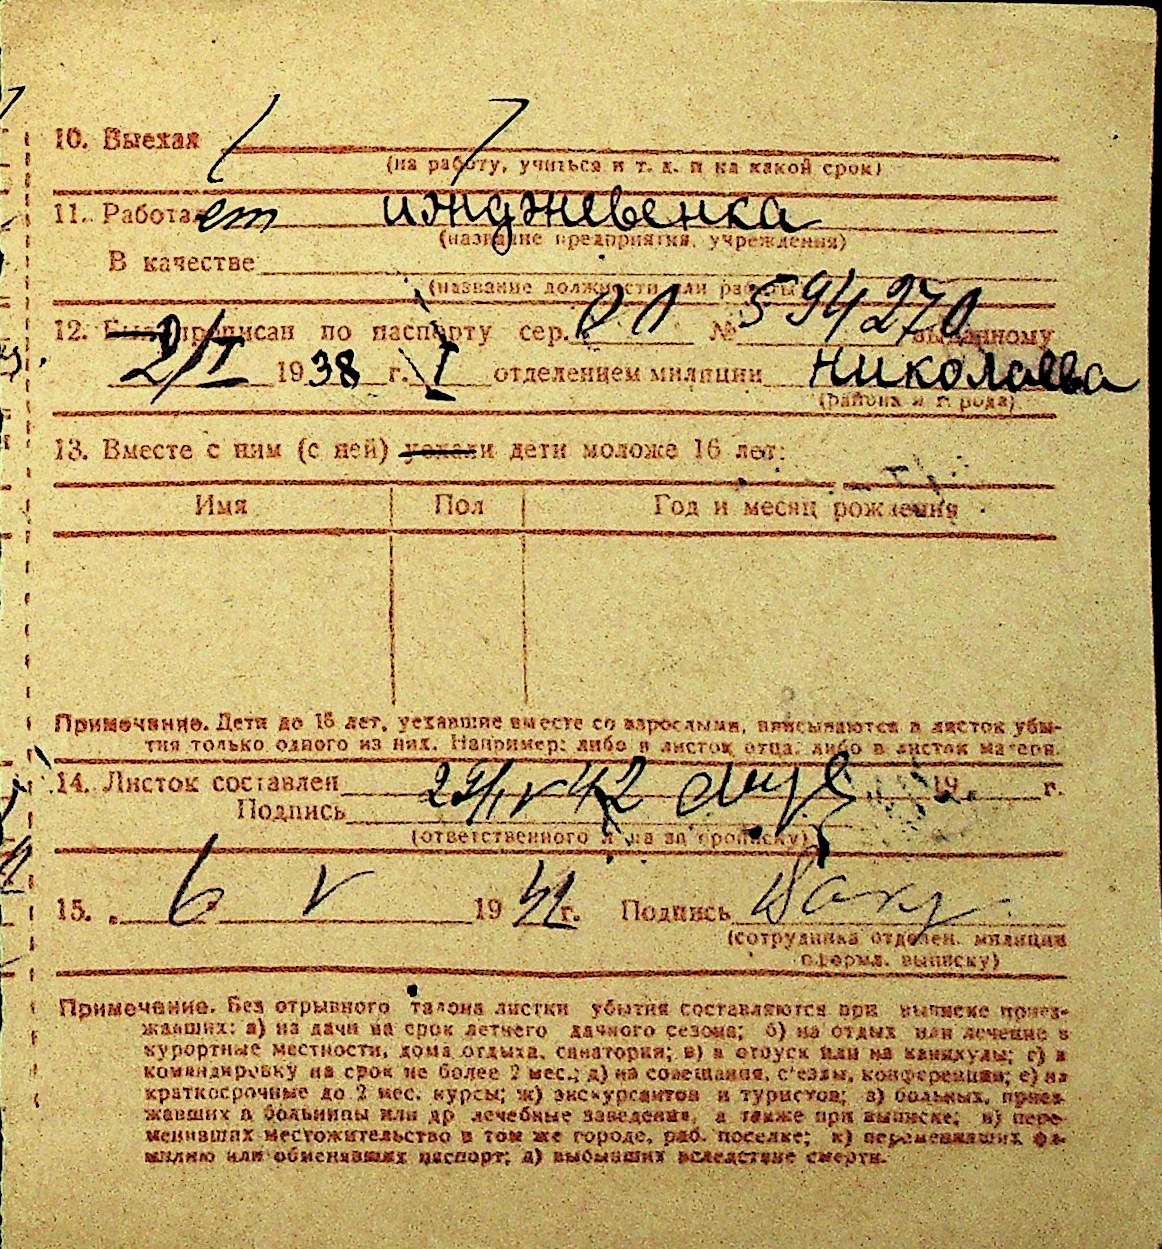 10. Выехал
(на работу, учиться и т. д. и на какой срок)
11. Работает иждживенка
(название предприятия, учреждения)
В качестве
(название должности или работы)
12. Был прописан по паспорту сер. № 594270 выданному
2/I 1938 г. I отделением милиции Николаева
(района и города)
13. Вместе с ним (с ней) уехали дети моложе 16 лет:
Имя Пол Год и месяц рождения
Примечание. Дети до 16 лет, уехавшие вместе со взрослыми, вписываются в листок убы-
тия только одного из них. Например: либо в листок отца, либо в листок матери.
14. Листок составлен 29/IV 42 19 г.
Подпись
(ответственного лица за прописку)
15. 6 V 19 г. Подпись
(сотрудника отделен. милиции
оформл. выписку)
Примечание. Без отрывного талона листки убытия составляются при выписке приез-
жавших: а) на дачи на срок летнего дачного сезона; б) на отдых или лечение в
курортные местности, дома отдыха, санатория; в) в отпуск или на каникулы; г) в
командировку на срок не более 2 мес.; д) на совещания, с'езды, конференции; е) на
краткосрочные до 2 мес. курсы; ж) экскурсантов и туристов; з) больных, приез-
жавших в больницы или др лечебные заведения, а также при выписке; и) пере-
менивших местожительство в том же городе, раб. поселке; к) переменивших фа-
милию или обменявших паспорт; л) выбывших вследствие смерти.